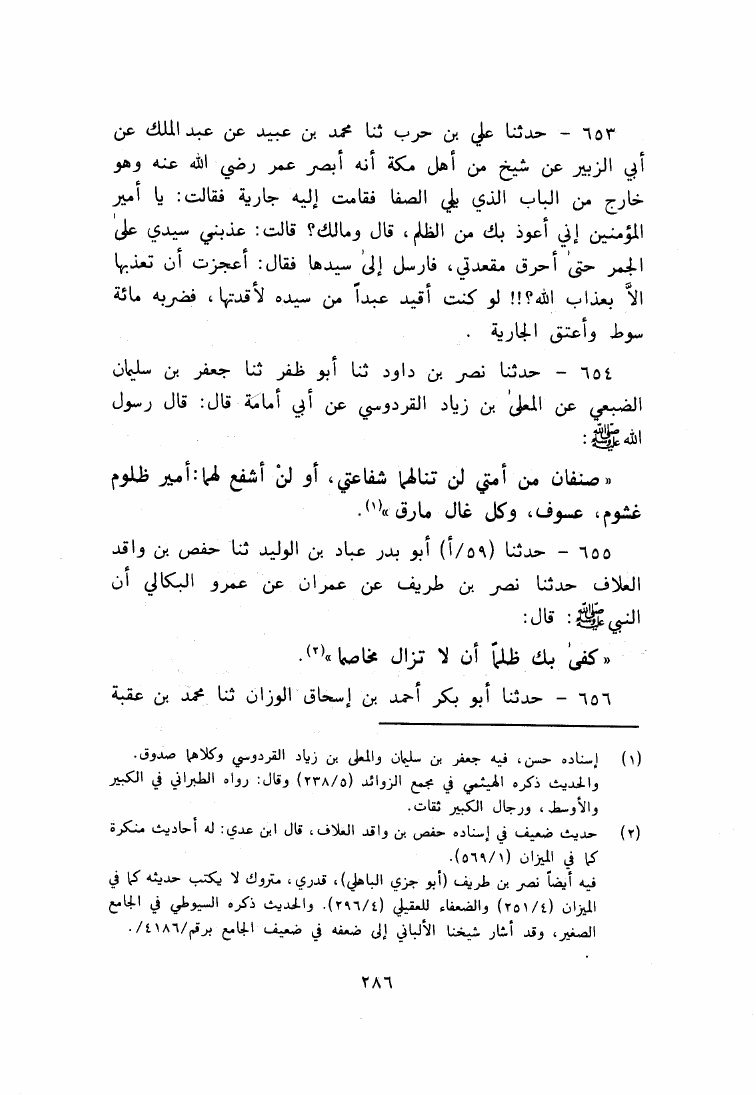 ٦٥٣ - حدثنا علي بن حرب ثنا محمد بن عبيد عن عبد الملك عن
أبي الزبير عن شيخ من أهل مكة أنه أبصر عمر رضي الله عنه وهو
خارج من الباب الذي يلي الصفا فقامت إليه جارية فقالت: يا أمير
المؤمنين إني أعوذ بك من الظلم، قال ومالك؟ قالت: عذبني سيدي علىٰ
الجمر حتىٰ أحرق مقعدتي، فارسل إلىٰ سيدها فقال: أعجزت أن تعذبها
الاَّ بعذاب الله؟!! لو كنت أقيد عبداً من سيده لأقدتها، فضربه مائة
سوط وأعتق الجارية .
٦٥٤ - حدثنا نصر بن داود ثنا أبو ظفر ثنا جعفر بن سليمان
الضبعي عن المعلىٰ بن زياد القردوسي عن أبي أمامة قال: قال رسول
الله ﷺ:
«صنفان من أمتي لن تنالهما شفاعتي، أو لنْ أشفع لهما: أمير ظلوم
غشوم، عسوف، وكل غال مارق»(١).
٦٥٥ - حدثنا (٥٩/أ) أبو بدر عباد بن الوليد ثنا حفص بن واقد
العلاف حدثنا نصر بن طريف عن عمران عن عمرو البكالي أن
النبي ﷺ: قال:
«كفىٰ بك ظلماً أن لا تزال مخاصما»(٢).
٦٥٦ - حدثنا أبو بكر أحمد بن إسحاق الوزان ثنا محمد بن عقبة
(١) إسناده حسن، فيه جعفر بن سليمان والمعلى بن زياد القردوسي وكلاهما صدوق.
والحديث ذكره الهيثمي في مجمع الزوائد (٢٣٨/٥) وقال: رواه الطبراني في الكبير
والأوسط، ورجال الكبير ثقات.
(٢) حديث ضعيف في إسناده حفص بن واقد العلاف، قال ابن عدي: له أحاديث منكرة
كما في الميزان (٥٦٩/١).
فيه أيضاً نصر بن طريف (أبو جزي الباهلي)، قدري، متروك لا يكتب حديثه كما في
الميزان (٢٥١/٤) والضعفاء للعقيلي (٢٩٦/٤). والحديث ذكره السيوطي في الجامع
الصغير، وقد أشار شيخنا الألباني إلى ضعفه في ضعيف الجامع برقم/٤١٨٦/.
٢٨٦